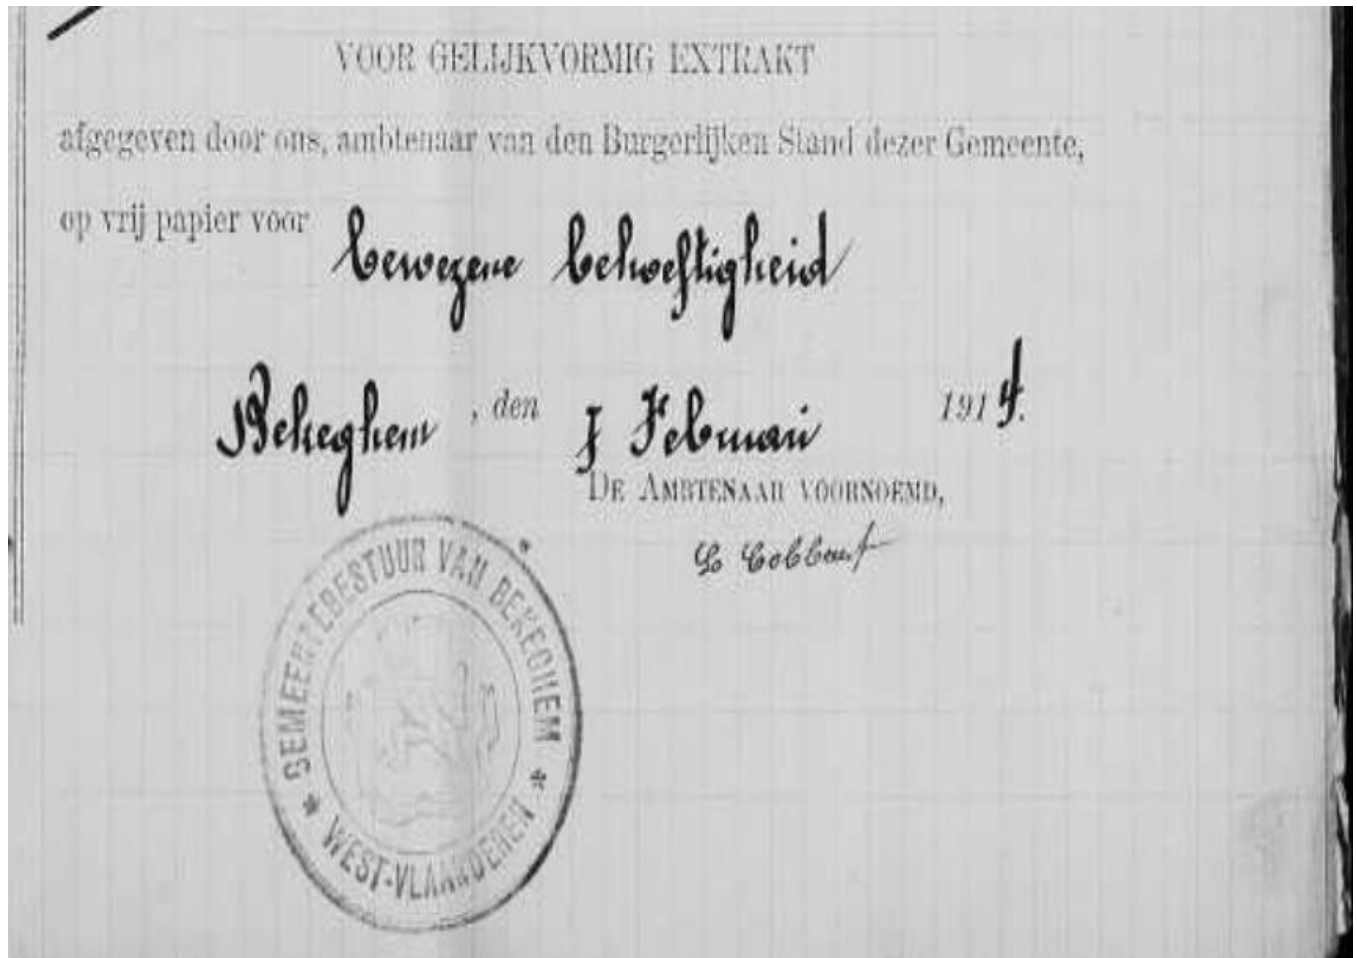 VOOR GELIJKVORMIG EXTRAKT
afgegeven door ons, ambtenaar van den Burgerlijken Stand dezer Gemeente,
op vrij papier voor bewezene behoeftigheid
Bekeghem, den 7 Februari 1914.
DE AMBTENAAR VOORNOEMD,
GEMEENTEBESTUUR VAN BEKEGHEM
* WEST-VLAANDEREN *